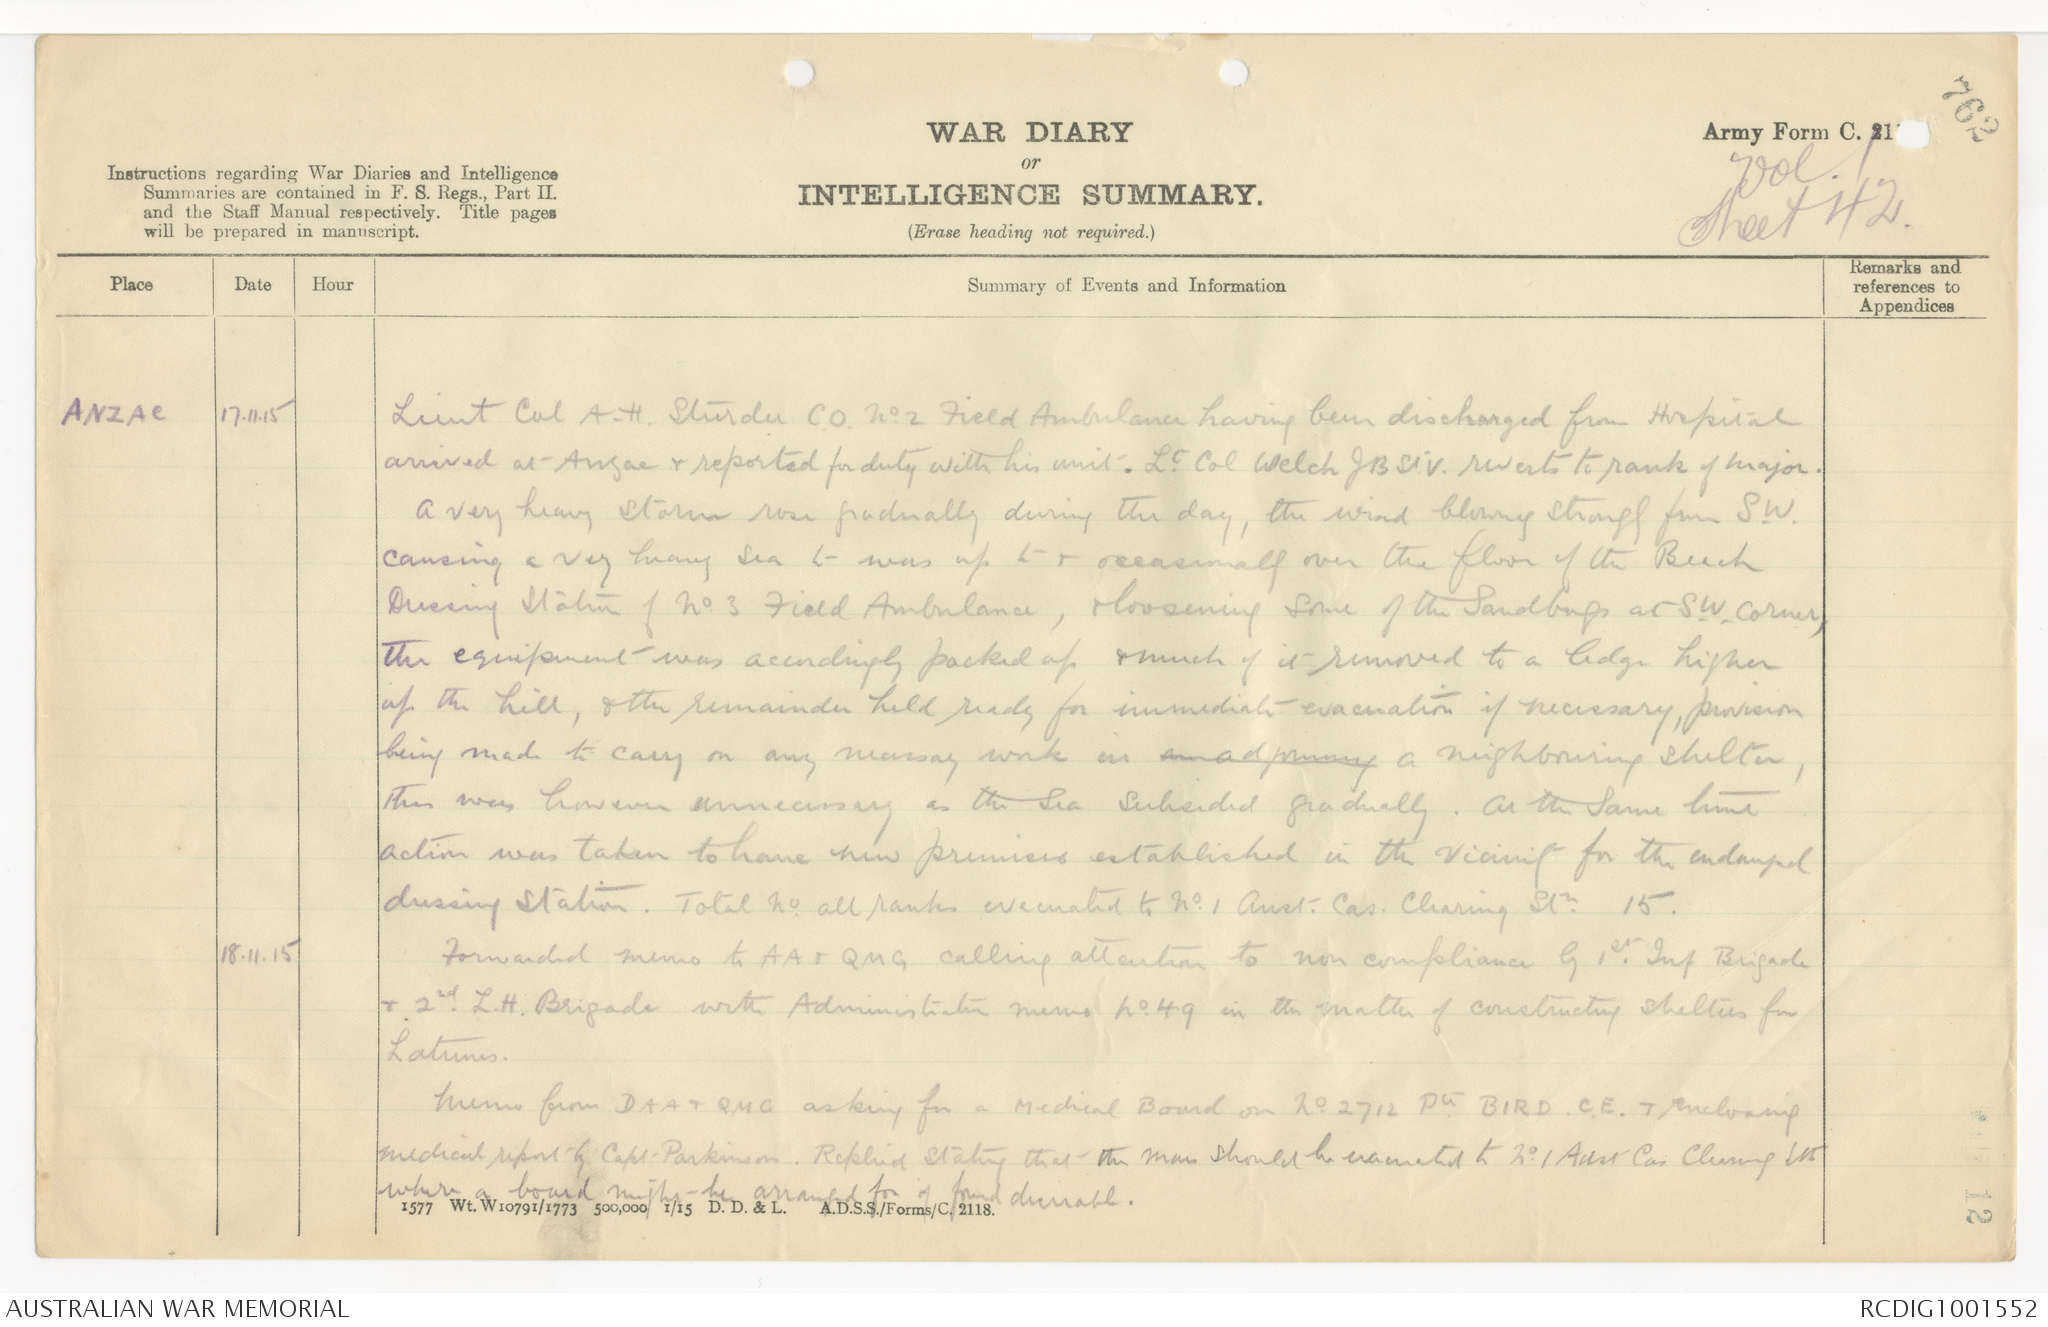 762
WAR DIARY
or
INTELLIGENCE SUMMARY.
(Erase heading not required.)
Army Form C. 211
Vol. 1
Sheet 42.
Instructions regarding War Diaries and Intelligence
Summaries are contained in F. S. Regs., Part II.
and the Staff Manual respectively. Title pages
will be prepared in manuscript.
Place
Date
Hour
Summary of Events and Information
Remarks and
references to
Appendices
ANZAC
17.11.15
Lieut Col A.H. Sturdee C.O. No. 2 Field Ambulance having been discharged from Hospital
arrived at Anzac & reported for duty with his unit. Lt Col Welch J B St V. reverts to rank of Major.
A very heavy storm rose gradually during the day, the wind blowing strongly from S.W.
causing a very heavy sea to was up to & occasionally over the floor of the Beach
Dressing Station of No. 3 Field Ambulance, & loosening some of the Sandbags at S.W. corner,
the equipment was accordingly packed up & much of it removed to a ledge higher
up the hill, & the remainder held ready for immediate evacuation if necessary, provision
being made to carry on any necessary work in an adjoining a neighbouring shelter,
this was however unnecessary as the Sea subsided gradually. At the same time
action was taken to have new premises established in the vicinity for the endangered
dressing station. Total No. all ranks evacuated to No. 1 Aust. Cas. Clearing Stn 15.
18.11.15
Forwarded memo to AA & QMG calling attention to non compliance by 1st. Inf Brigade
& 2nd. L.H. Brigade with Administrative memo No. 49 in the matter of constructing shelters for
Latrines.
Memo from DAA & QMG asking for a Medical Board on No 2712 Pte BIRD. C.E. & enclosing
medical report by Capt Parkinson. Replied stating that the man should be evacuated to No. 1 Aust Cas Clearing Stn
where a board might be arranged for if found desirable.
1577 Wt. W10791/1773 500,000 1/15 D. D. & L. A.D.S.S./Forms/C. 2118.
12
AUSTRALIAN WAR MEMORIAL
RCDIG1001552